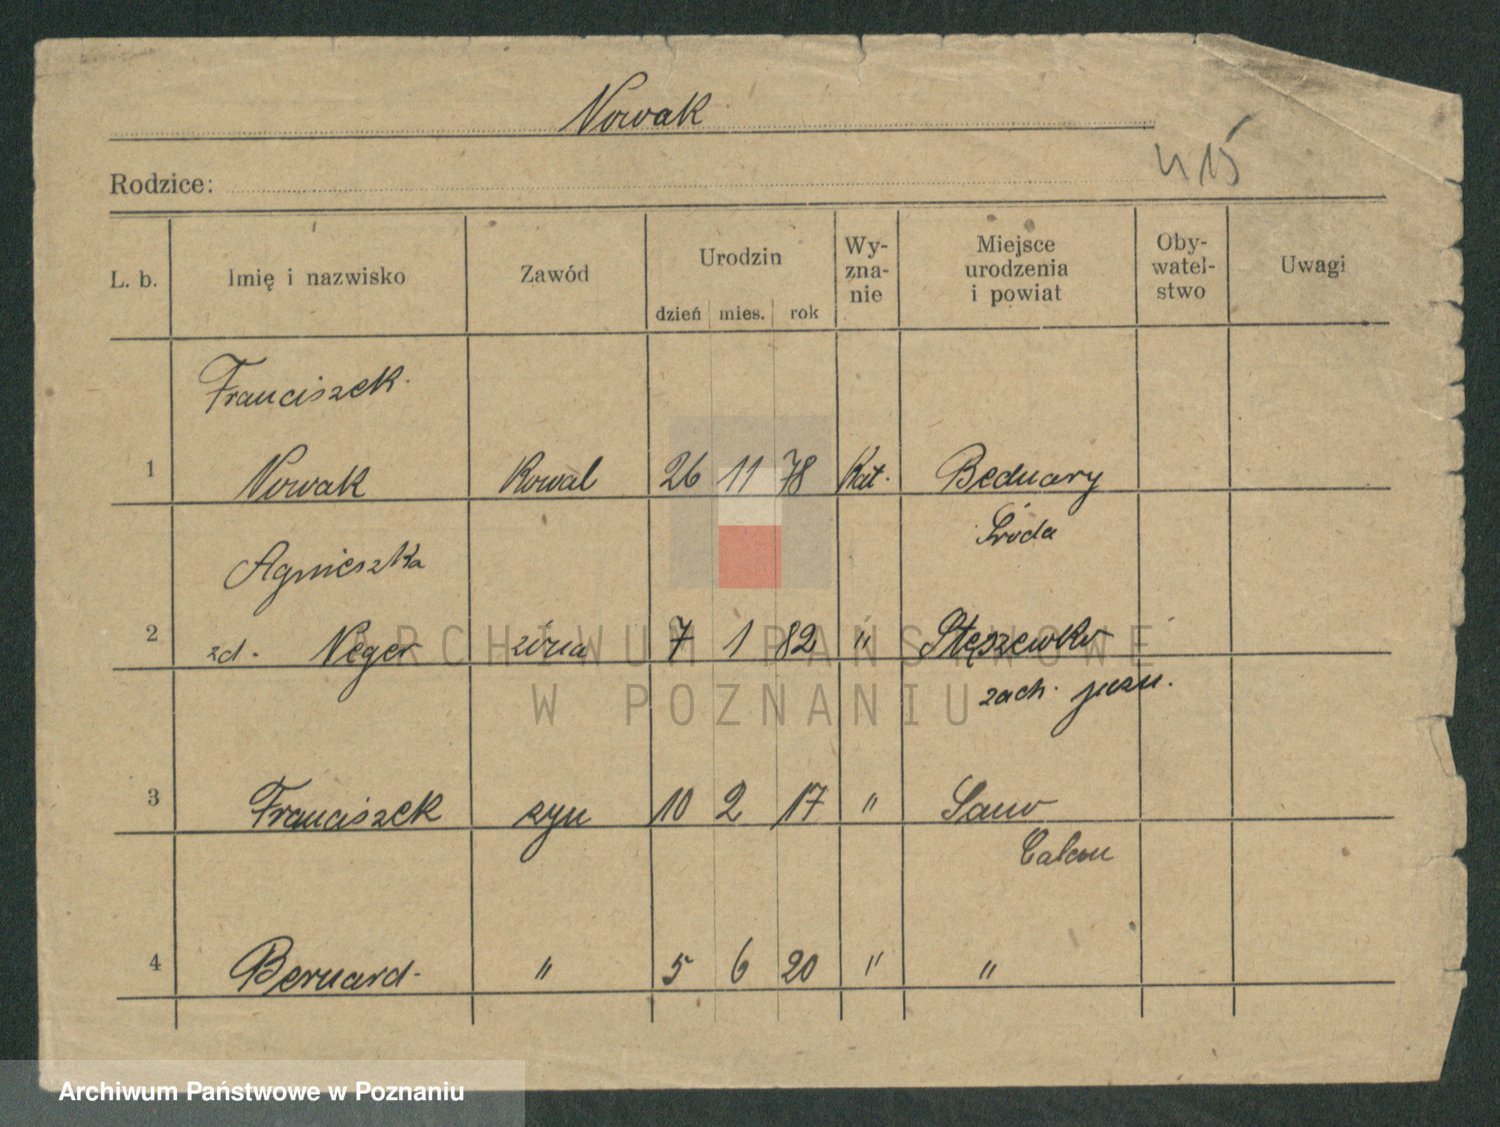 Nowak
415
Rodzice:
L. b. Imię i nazwisko Zawód Urodzin dzień mies. rok Wy-zna-nie Miejsce urodzenia i powiat Oby-watel-stwo Uwagi
Franciszek
1 Nowak Kowal 26 11 78 Kat. Bednary
Środa
Agnieszka
2 zd. Neger żona 7 1 82 " Stęszewko
zach. pozn.
3 Franciszek syn 10 2 17 "
4 Bernard " 5 6 20 " "
ARCHIWUM PAŃSTWOWE
W POZNANIU
Archiwum Państwowe w Poznaniu